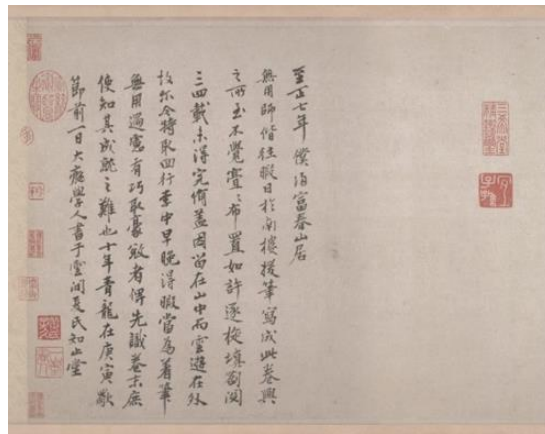 至正七年僕歸富春山居
無用師偕往暇日於南樓援筆寫成此卷興
之所至不覺亹亹布置如許逐旋填劄閱
三四載未得完備盖因留在山中而雲遊在外
故尔今特取回行李中早晚得暇當為着筆
無用過慮有巧取豪敓者俾先識卷末庶
使知其成就之難也十年青龍在庚寅歜
節前一日大癡學人書于雲間夏氏知止堂
三希堂精鑑璽
宜子孫